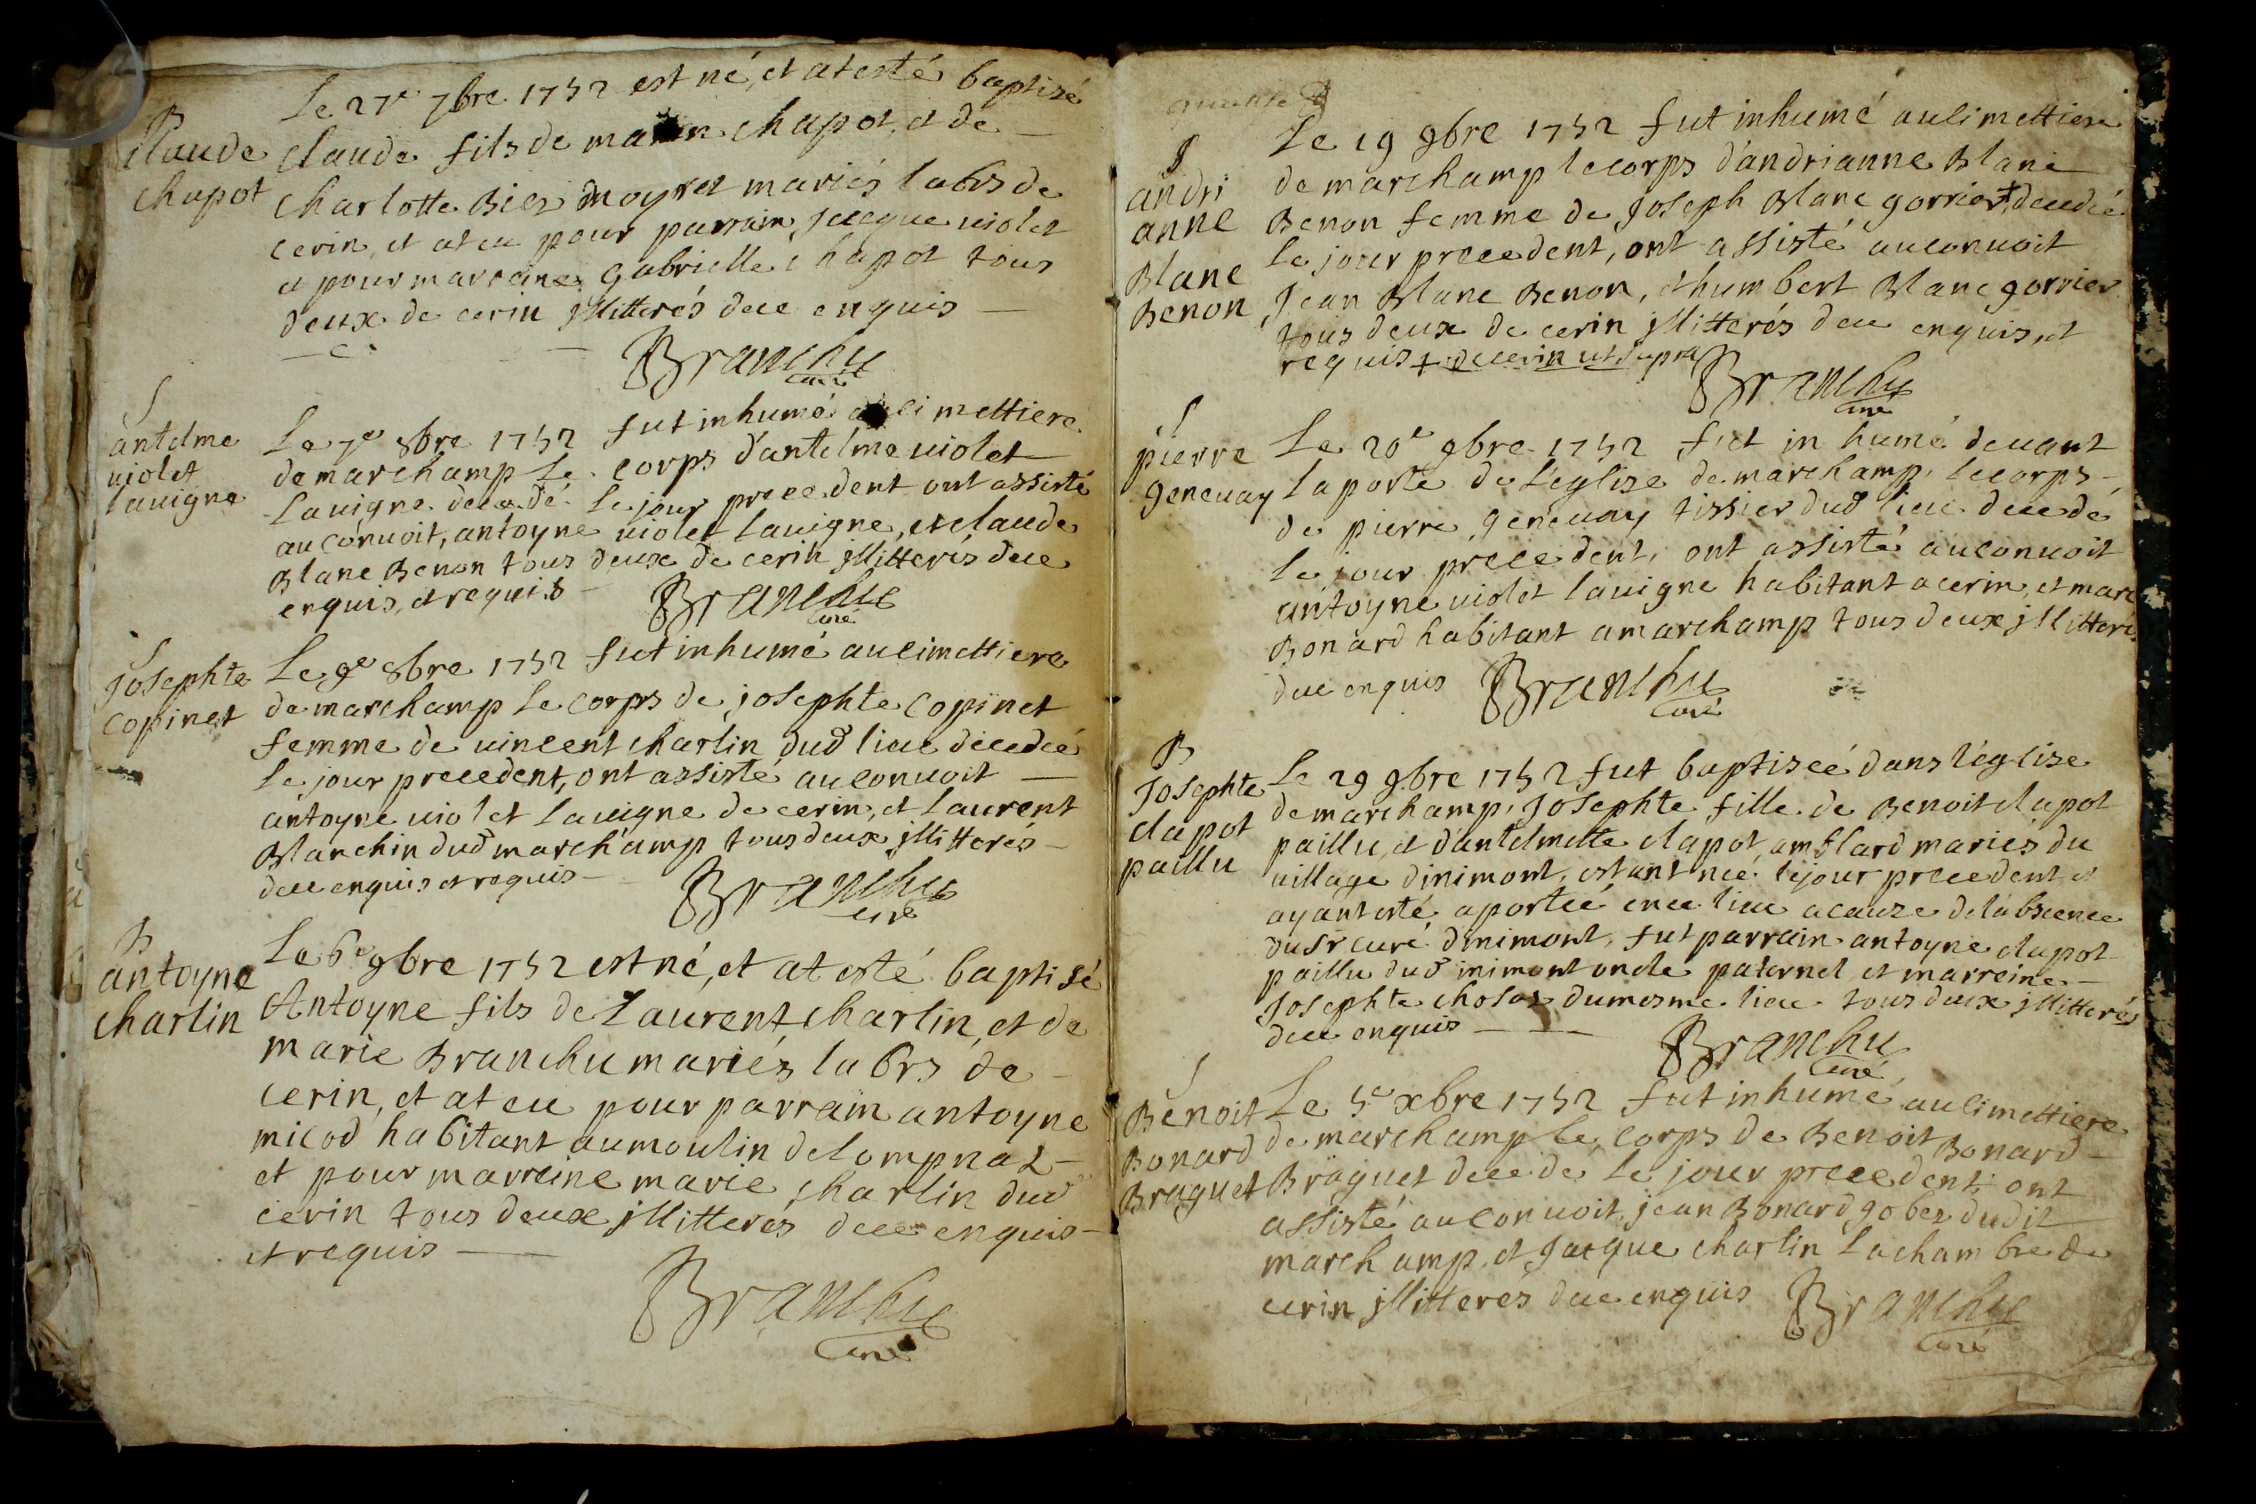 Le 27e 7bre 1752 est né, et at esté baptizé
B
Claude
Chapot
claude fils de chapot, et de
charlotte Bier moyret mariés labrs de
cerin, et at eu pour parrain, jacque violet
et pour marraine gabrielle chapot tous
deux de cerin jllitterés dece enquis
Branchu
curé
S
antelme
violet
lavigne
Le 7e 8bre 1752 fut inhumé au cimettiere
de marchamp Le corps d'antelme violet
Lavigne decedé Le jour precedent ont assisté
au convoit, antoyne violet lavigne, et claude
Blanc Benon tous deux de cerin jllitterés dece
enquis, et requis
Branchu
curé
S
Josephte
Copinet
Le 9e 8bre 1752 fut inhumé au cimettiere
de marchamp Le corps de josephte Copinet
femme de vincent charlin dud lieu décedeé
Le jour precedent, ont assisté au convoit
antoyne violet lavigne de cerin, et laurent
Blanchin dud marchamp tous deux jllitterés
dece enquis et requis
Branchu
curé
B
antoyne
charlin
Le 6e 9bre 1752 est né, et at esté baptisé
Antoyne fils de Laurent charlin, et de
marie Branchu mariés labrs de
cerin, et at eu pour parrain antoyne
micod habitant au moulin de lompnaz
et pour marreine marie charlin dud
cerin tous deux jllitterés dece enquis
et requis
Branchu
curé
S
andri
anne
Blanc
Benon
Le 19 9bre 1752 fut inhumé au cimettiere
de marchamp le corps d'andrianne Blanc
Benon femme de Joseph Blanc gorrier + decedée
le jour precedent, ont assisté au convoit
Jean Blanc Benon, et humbert Blanc gorrier
tous deux de cerin jllitterés dece enquis, et
requis + de cerin ut supra
Branchu
curé
S
pierre
genevay
Le 20e 9bre 1752 fut inhumé devant
la porte de l'eglize de marchamp, le corps
de pierre genevay tissier dud lieu decedé
le jour precedent, ont assisté au convoit
antoyne violet lavigne habitant a cerin, et marc
Bonard habitant a marchamp tous deux jllitteré
dece enquis
Branchu
curé
B
Josephte
clapot
paillu
Le 29 9bre 1752 fut baptiseé dans l'eglize
de marchamp, Josephte fille de Benoit clapot
paillu, et d'antelmette clapot amblard mariés du
village d'inimont, estant nee le jour precedent et
ayant esté aportée en ce lieu a cauze de l'absence
du sr curé d'inimont, fut parrain antoyne clapot
paillu dud inimont oncle paternel et marreine
Josephte cholaz du mesme lieu tous deux jllitterés
dece enquis
Branchu
curé
S
Benoit
Bonard
Braguet
Le 5e xbre 1752 fut inhumé au cimettiere
de marchamp le corps de Benoit Bonard
Braguet decedé le jour precedent, ont
assisté au convoit, jean Bonard gobez dudit
marchamp, et Jacque charlin Lachambre de
cerin jllitterés dece enquis
Branchu
curé